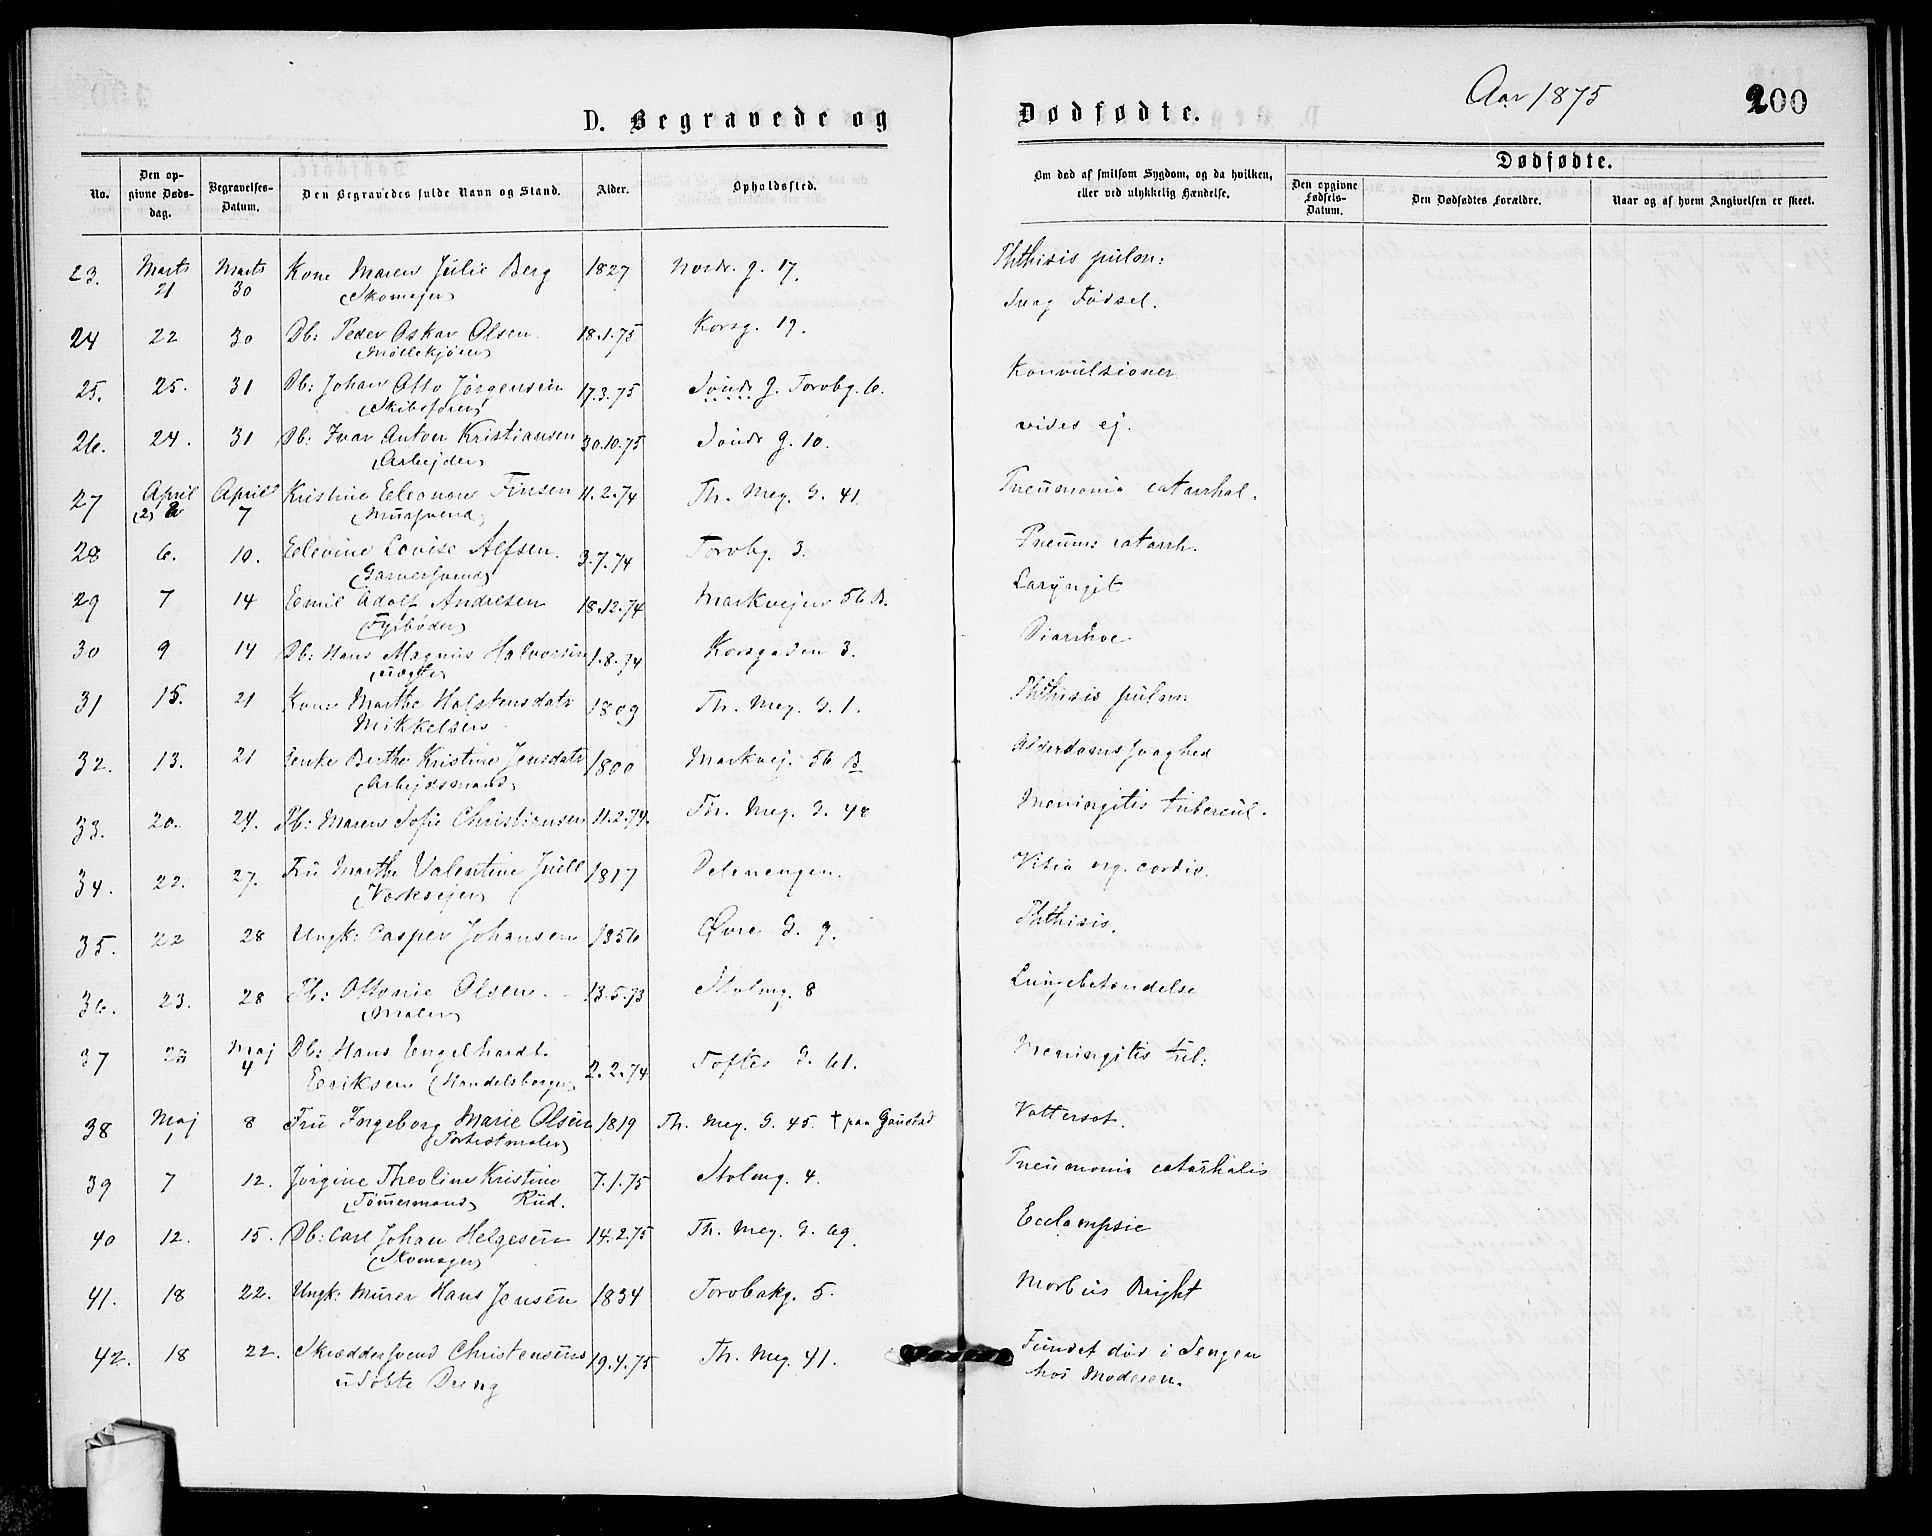 Aar 1875
200
D. Begravede og
Dødfødte.
No.
Den opgivne Dødsdag.
Begravelses-Datum.
Den Begravedes fulde Navn og Stand.
Alder.
Opholdssted.
Om død af smitsom Sygdom, og da hvilken, eller ved ulykkelig Hændelse.
Dødfødte.
Den opgivne Fødsels-Datum.
Den Dødfødtes Forældre.
Naar og af hvem Angivelsen er skeet.
23. Marts 21 Marts 30 Kone Maren Julie Berg 1827 Nordr. g. 17. Phthisis pulm:
(Skomager)
24 22 30 Db: Peder Oskar Olsen 18.1.75 Korsg. 19. Svag Fødsel.
(Møllekjører)
25. 25. 31 Db: Johan Otto Jörgensen 17.3.75 Söndr g. Torvbg. 6. Konvulsioner
(Skibsfører)
26. 24. 31 Db: Ivar Anton Kristiansen 30.10.75 Söndr g. 10. vides ej.
(Arbejder)
27 April 2 April 7 Kristine Eleonore Finsen 11.2.74 Th. Mey. G. 41 Pneumonia catarrhal.
(Mursvend)
28 6. 10. Elevine Lovise Alfsen. 3.7.74 Torvbg. 3. Pneum: catarrh.
(Garversvend)
29 7 14 Emil Adolf Andresen 18.12.74 Markvejen 56 B. Laryngit
(Fyrbøder)
30 9 14 Db: Hans Magnus Halvorsen 1.8.74 Korsgaden 3. Diarrhoe
31 15. 21 Kone Marthe Holstensdatr 1809 Th. Mey. G. 1. Phthisis pulm.
Mikkelsen
32. 13. 21 Enke Berthe Kristine Jensdatr 1800 Markvej. 56 B Alderdomssvaghed
(Arbejdsmand)
33. 20. 24. Pb: Maren Sofie Christiansen 11.2.74. Th. Mey. G. 48 Meningitis tubercul.
34. 22. 27. Fru Marthe Valentine Juell 1817 Delenengen. Vitia org. cordis.
35. 22 28 Ungk: Casper Johansen 1856 Øvre G. 9. Phthisis.
36. 23. 28 Pb: Ottomie Olsen. 13.5.73 Stolmg. 8 Lungebetændelse
(Maler)
37 Maj 4 Db: Hans Engelhardt 2.2.74 Toftes G. 61. Meningitis tub:
Eriksen (Handelsborger)
38 Maj 1 8 Fru Ingeborg Marie Olsen 1819 Th. Mey. G. 45. † paa Gaustad Vattersot.
(Portrætmaler)
39 7 12. Jörgine Theoline Kristine 7.1.75 Stolmg. 4. Pneumonia catarhalis
(Tömmermand) Rud.
40 12. 15. Db: Carl Johan Helgesen 14.2.75 Th. Mey. G. 69. Ecclampsie
(Skomager)
41. 18 22. Ungk: Murer Hans Jensen 1834 Torvbakg. 5. Morbus Bright
42. 18 22. Skræddersvend Christensens 19.4.75 Th. Mey. 41. Fundet død i Sengen
udöbte Dreng hos Moderen.